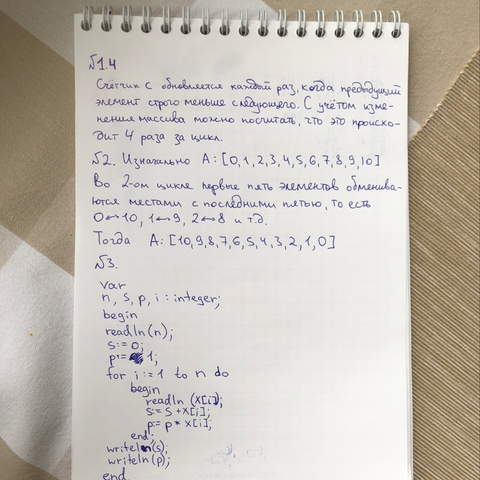 №1.4
Счётчик с обновляется каждый раз, когда предыдущий
элемент строго меньше следующего. С учётом изме-
нения массива можно посчитать, что это происхо-
дит 4 раза за цикл.
№2. Изначально A: [0,1,2,3,4,5,6,7,8,9,10]
Во 2-ом цикле первые пять элементов обменива-
ются местами с последними пятью, то есть
0↔10, 1↔9, 2↔8 и т.д.
Тогда A: [10,9,8,7,6,5,4,3,2,1,0]
№3.
var
n, s, p, i : integer;
begin
readln(n);
s:= 0;
p:= 1;
for i:= 1 to n do
begin
readln (x[i]);
s:= s + x[i];
p:= p * x[i];
end;
writeln(s);
writeln(p);
end.